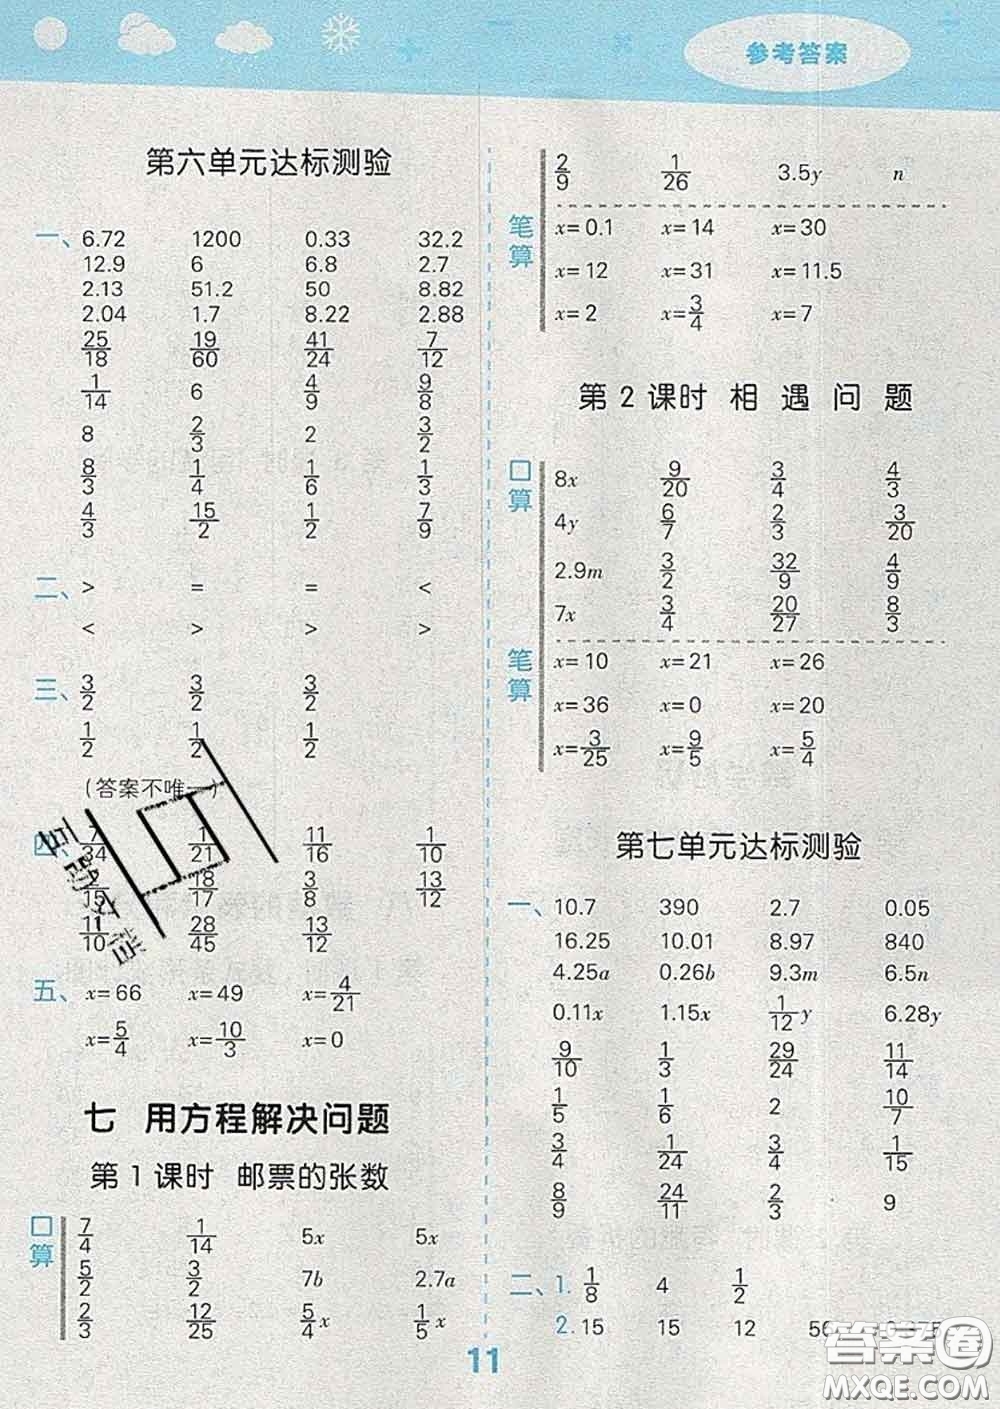 参考答案
第六单元达标测验
一、 6.72 1200 0.33 32.2
12.9 6 6.8 2.7
2.13 51.2 50 8.82
2.04 1.7 8.22 2.88
25/18 19/60 41/24 7/12
1/14 6 4/9 9/8
8 2/3 2 3/2
8/3 1/4 1/6 1/3
4/3 15/2 1/2 7/9
二、 > = = <
< > > >
三、 3/2 3/2 3/2
1/2 1/2 1/2
(答案不唯一)
四、 7/34 1/21 11/16 1/10
2/15 18/17 3/8 13/12
11/10 28/45 13/12
五、 x=66 x=49 x=4/21
x=5/4 x=10/3 x=0
七 用方程解决问题
第1课时 邮票的张数
口算 7/4 1/14 5x 5x
5/2 3/2 7b 2.7a
2/3 12/25 5/4x 1/5x
2/9 1/26 3.5y n
笔算 x=0.1 x=14 x=30
x=12 x=31 x=11.5
x=2 x=3/4 x=7
第2课时 相遇问题
口算 8x 9/20 3/4 4/3
4y 6/7 2/3 3/20
2.9m 3/2 32/9 4/9
7x 3/4 20/27 8/3
笔算 x=10 x=21 x=26
x=36 x=0 x=20
x=3/25 x=9/5 x=5/4
第七单元达标测验
一、 10.7 390 2.7 0.05
16.25 10.01 8.97 840
4.25a 0.26b 9.3m 6.5n
0.11x 1.15x 1/12y 6.28y
9/10 1/3 29/24 11/14
1/5 1/6 2 10/7
3/4 1/24 3/4 1/15
8/9 24/11 2/3 9
二、 1. 1/8 4 1/2
2. 15 15 12 56
11
答案圈
MXQE.COM
互助文档